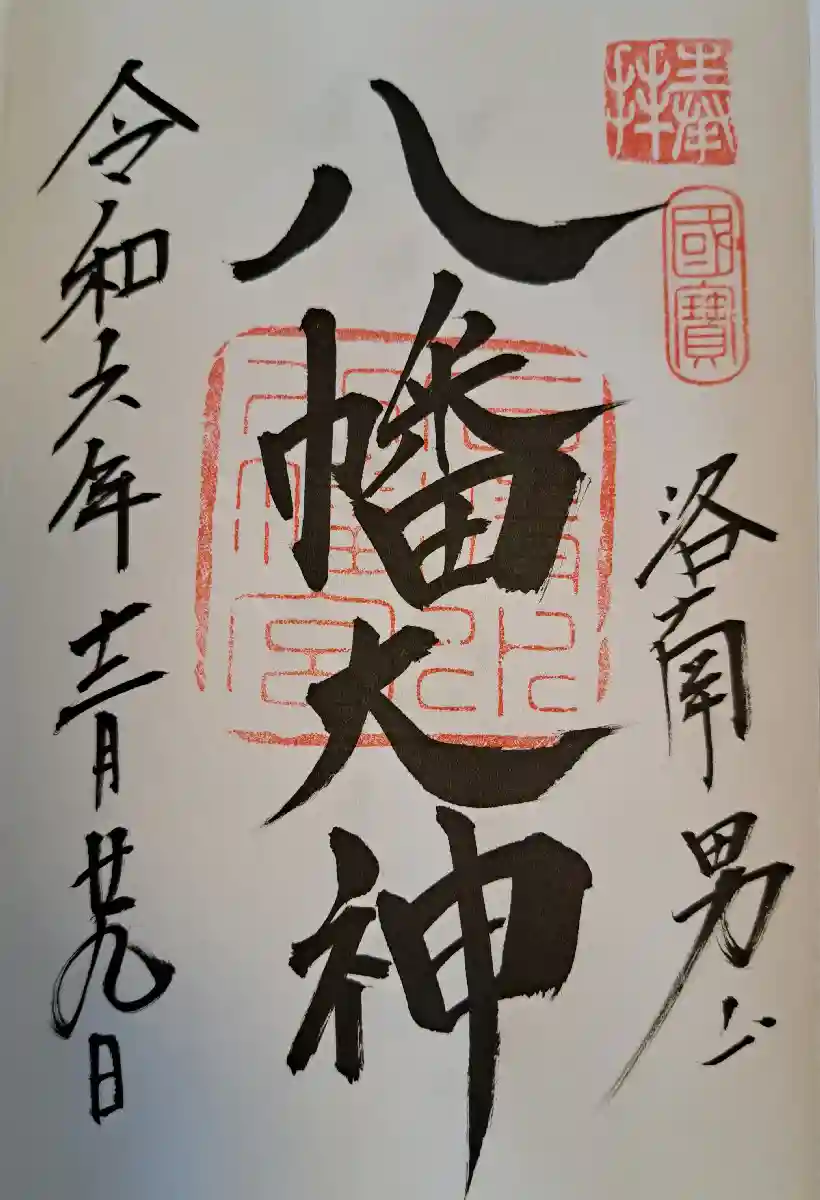 奉拝
國寳
洛南男山
八幡大神
石清水八幡宮
令和六年十二月廿九日